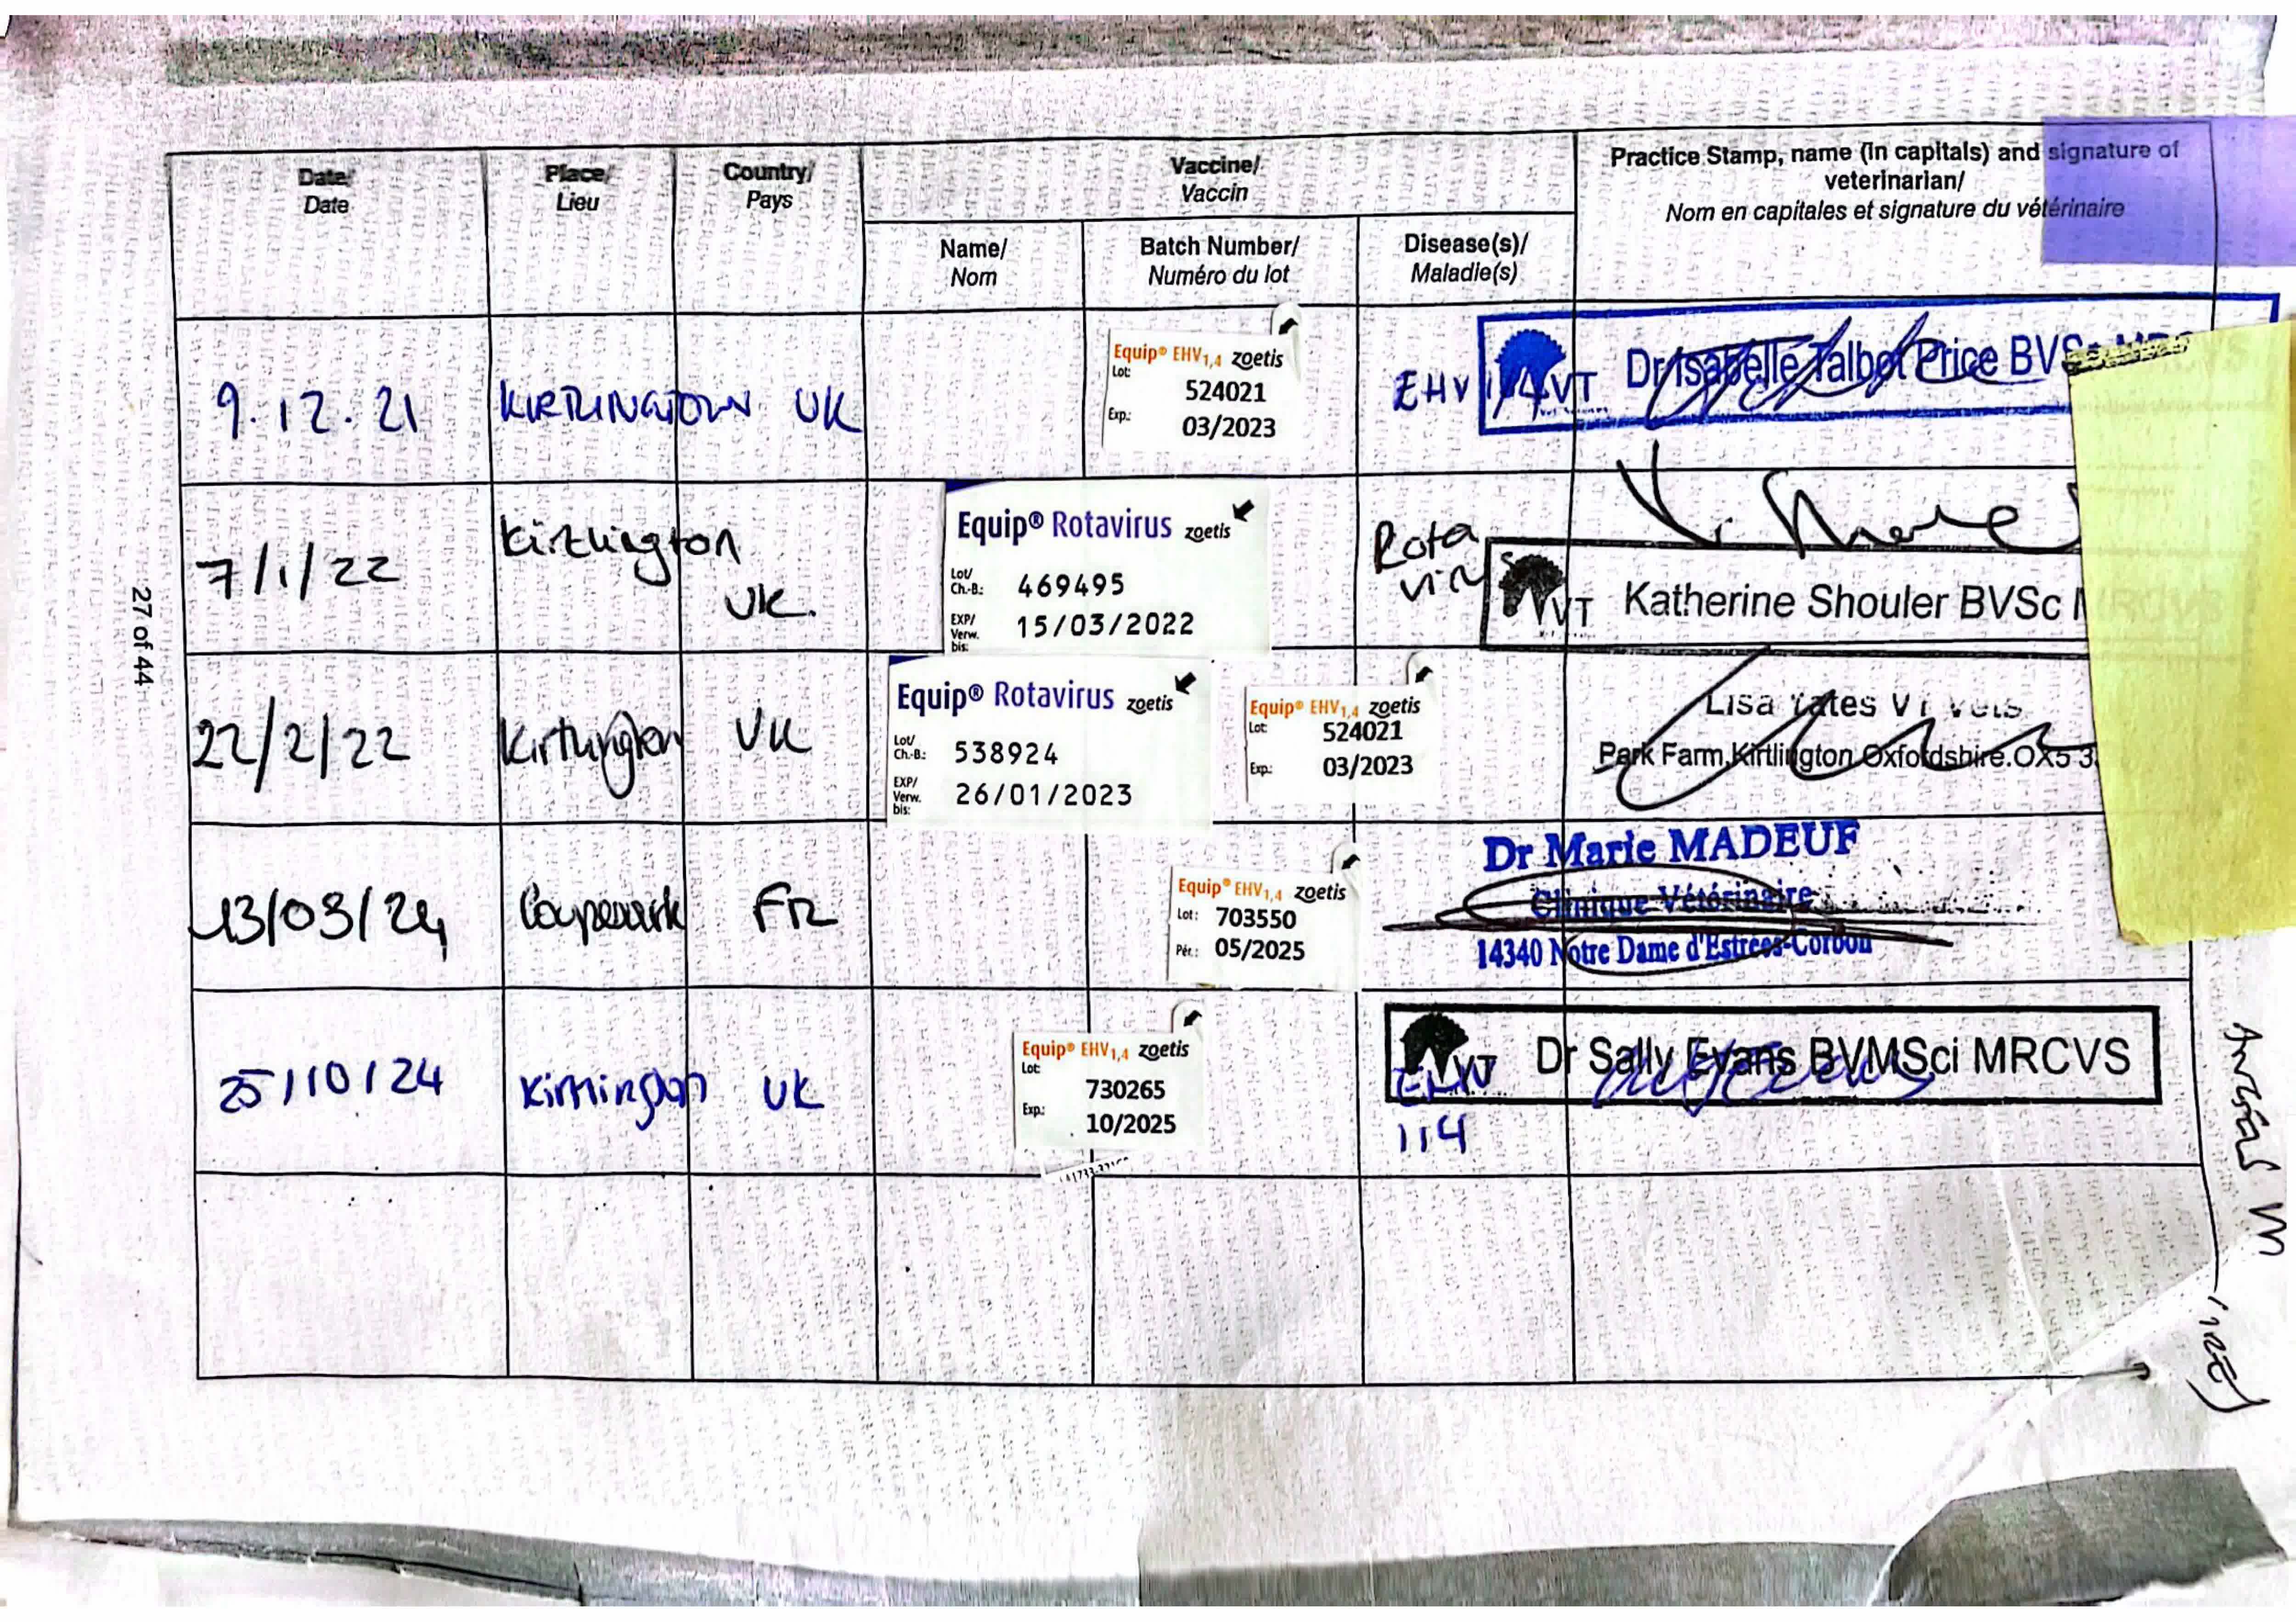 Date/
Date
Place/
Lieu
Country/
Pays
Vaccine/
Vaccin
Name/
Nom
Batch Number/
Numéro du lot
Disease(s)/
Maladie(s)
Practice Stamp, name (in capitals) and signature of
veterinarian/
Nom en capitales et signature du vétérinaire
9.12.21
UK
Equip® EHV1,4 zoetis
Lot: 524021
Exp.: 03/2023
EHV 1/4
VT Dr Isabelle Talbot Price BVSc MRCVS
7/1/22
Kirtlington
UK.
Equip® Rotavirus zoetis
Lot/
Ch.-B.: 469495
EXP/
Verw.
bis: 15/03/2022
Rota
virus
VT Katherine Shouler BVSc MRCVS
22/2/22
Kirtlington
UK
Equip® Rotavirus zoetis
Lot/
Ch.-B.: 538924
EXP/
Verw.
bis: 26/01/2023
Equip® EHV1,4 zoetis
Lot: 524021
Exp.: 03/2023
Lisa Yates VT Vets
Park Farm,Kirtlington Oxfordshire.OX5 3
13/03/24
FR
Equip® EHV1,4 zoetis
Lot: 703550
Pér.: 05/2025
Dr Marie MADEUF
Clinique Vétérinaire
14340 Notre Dame d'Estrées-Corbon
25/10/24
Kirtlington
UK
Equip® EHV1,4 zoetis
Lot: 730265
Exp.: 10/2025
EHV
1,4
VT Dr Sally Evans BVMSci MRCVS
27 of 44